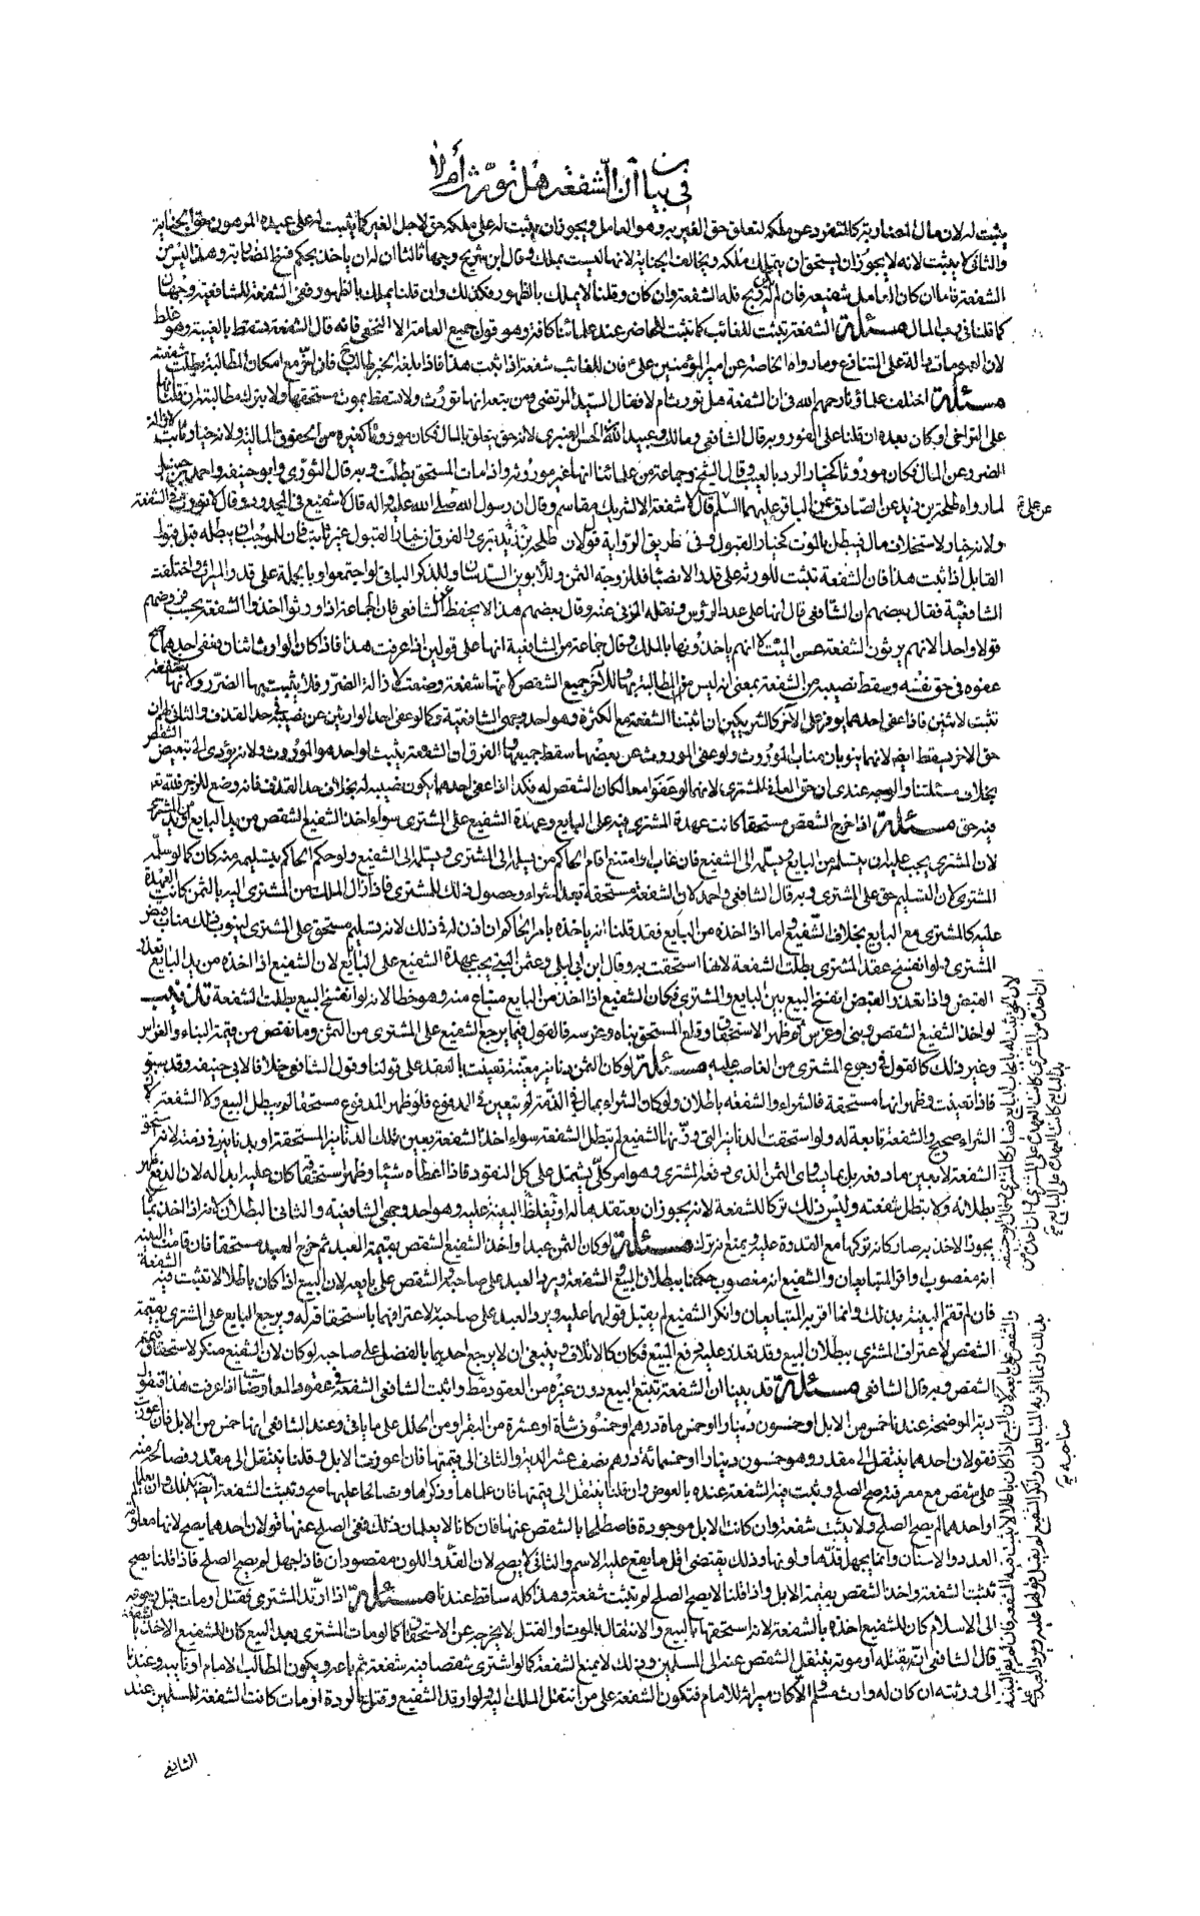 في بيان أن الشفعة هل تورث أم لا
يثبت له لان مال المضاربة كالمنفرد عن ملكه لتعلق حق الغير به وهو العامل ويجوز ان يثبت له على ملكه حق لاجل الغير كما يثبت له على عبده المرهون حق الجناية
والثاني لا يثبت لانه لا يجوز ان يستحق ان يتملك ملكه ويخالف الجناية لانها ليست بملك وقال ابن شريح وجها ثالثا ان له ان ياخذ بحكم فسخ المضاربة وهذا ليس من
الشفعة فاما ان كان العامل شفيعه فان لم يكن ربح فله الشفعة وان كان وقلنا لا يملك بالظهور فكذلك وان قلنا يملك بالظهور ففي الشفعة للشافعية وجهان
كما قلنا في رب المال مسئلة الشفعة تثبت للغائب كما تثبت للحاضر عند علمائنا كافة وهو قول جميع العامة الا النخعي فانه قال الشفعة تسقط بالغيبة وهو غلط
لان العمومات دالة على التنازع وما رواه الخاصة عن امير المؤمنين علي ع فان للغائب شفعة اذا ثبت هذا فاذا بلغه الخبر طالب فان اخر مع امكان المطالبة بطلت شفعته
مسئلة اختلف علماؤنا رحمهم الله في ان الشفعة هل تورث ام لا فقال السيد المرتضى ومن تبعه انها تورث ولا تسقط بموت مستحقها ولا بترك مطالبته ان قلنا انها
على التراخي او كان بعده ان قلنا على الفور وبه قال الشافعي ومالك وعبيد الله بن الحسن العنبري لانه حق يتعلق بالمال فكان موروثا كغيره من الحقوق المالية ولانه خيار ثابت لازالة
الضرر عن المال فكان موروثا كخيار الرد بالعيب وقال الشيخ وجماعة من علمائنا انها غير موروثة واذا مات المستحق بطلت وبه قال الثوري وابو حنيفة واحمد بن حنبل
لما رواه طلحة بن زيد عن الصادق عن الباقر عليهما السلم قال لا شفعة الا لشريك مقاسم وقال ان رسول الله صلى الله عليه واله قال لا شفيع في الحدود وقال لا تورث الشفعة
عن علي ع
ولانه خيار لاستخلاف مال فيبطل بالموت كخيار القبول وفي طريق الرواية قول لان طلحة بن زيد بتري والفرق ان خيار القبول غير ثابت فان للموجب ان يبطله قبل قبول
القابل اذا ثبت هذا فان الشفعة تثبت للورثة على قدر الانصباء فللزوجة الثمن وللابوين السدسان وللذكر الباقي لو اجتمعوا وبالجملة على قدر الميراث واختلفت
الشافعية فقال بعضهم ان الشافعي قال انها على عدد الرؤس ونقله المزني عنه وقال بعضهم هذا لا يحفظ عن الشافعي فان الجماعة اذا ورثوا اخذوا الشفعة بحسب فروضهم
قولا واحدا لانهم يرثون الشفعة عن الميت لا انهم ياخذونها بالملك وقال جماعة من الشافعية انها على قولين اذا عرفت هذا فاذا كان الوارث اثنان فعفى احدهما صح
عفوه في حق نفسه وسقط نصيبه من الشفعة بمعنى انه ليس له المطالبة بها وللآخر جميع الشقص لانها شفعة وضعت لازالة الضرر فلا يثبت بها الضرر ولانها شفعة
تثبت لاثنين فاذا عفى احدهما يوفر على الآخر كالشريكين ان اثبتنا الشفعة مع الكثرة وهو احد وجهي الشافعية وكما لو عفى احد الوارثين عن نصيبه في حد القذف والثاني ان
حق الاخر يسقط ايضا لانهما ينوبان مناب الموروث ولو عفى الموروث عن بعضها سقط جميعها والفرق ان الشفعة يثبت لواحد هو الموروث ولانه يؤدى الى تبعيض الشقص
بخلاف مسئلتنا والوجه عندي ان حق العافي للمشتري لانهما لو عفوا معا لكان الشقص له فكذا اذا عفى احدهما يكون نصيبه له بخلاف حد القذف فانه وضع للزجر فلله تعالى
فيه حق مسئلة اذا خرج الشقص مستحقا كانت عهدة المشتري فيه على البايع وعهدة الشفيع على المشتري سواء اخذ الشفيع الشقص من يد البايع او يد المشتري
لان المشتري يجب عليه ان يتسلمه من البايع ويسلمه الى الشفيع فان غاب او امتنع اقام الحاكم من يسلمه الى المشتري ويسلم الى الشفيع ولو حكم الحاكم بتسليمه منه كان كما لو سلمه
المشتري لان التسليم حق على المشتري وبه قال الشافعي واحمد لان الشفعة مستحقة بعد الشراء وحصول ذلك للمشتري فاذا زال الملك من المشتري اليه بالثمن كانت العهدة
عليه كالمشتري مع البايع بخلاف الشفيع واما اذا اخذه من البايع فقد قلنا انه ياخذه بامر الحاكم ان اذن له في ذلك لانه تسليم مستحق على المشتري لينوب ذلك مناب قبض
المشتري ولو انفسخ عقد المشتري بطلت الشفعة لانها استحقت به وقال ابن ابي ليلى وعثمان البتي يجب عهدة الشفيع على البايع لان الشفيع اذا اخذه من يد البايع تعذر
القبض واذا تعذر القبض انفسخ البيع بين البايع والمشتري فكان الشفيع اذا اخذ من البايع مبتاع منه وهو خطا لانه لو انفسخ البيع بطلت الشفعة تذنيب
لو اخذ الشفيع الشقص وبنى او غرس ثم ظهر الاستحقاق وقلع المستحق بناه وغرسه فالقول فيما يرجع الشفيع على المشتري من الثمن وما نقص من قيمة البناء والغراس
وغير ذلك كالقول في رجوع المشتري من الغاصب عليه مسئلة لو كان الثمن دنانير معينة تعينت بالعقد على قولنا وقول الشافعي خلافا لابي حنيفة وقد سبق
فاذا تعينت وظهر انها مستحقة فالشراء والشفعة باطلان ولو كان الشراء بمال في الذمة لم تتعين في المدفوع فلو ظهر المدفوع مستحقا لم يبطل البيع ولا الشفعة لان
الشراء صحيح والشفعة تابعة له ولو استحقت الدنانير التي وزنها الشفيع لم تبطل الشفعة سواء اخذ الشفعة بعين تلك الدنانير المستحقة او بدنانير في ذمته لانه استحق
الشفعة لا بعين ما دفعه بل بما يساوي الثمن الذي دفعه المشتري وهو امر كلي يشتمل على كل النقود فاذا اعطاه شيئا وظهر استحقاقها كان عليه ابداله لان الدفع ظهر
بطلانه ولا تبطل شفعته وليس ذلك تركا للشفعة لانه يجوز ان يعتقدها له او تغلظ البينة عليه وهو احد وجهي الشافعية والثاني البطلان لانه اذا اخذ بما لا
يجوز الاخذ به صار كانه تركها مع القدرة عليه ويمنع انه ترك مسئلة لو كان الثمن عبدا واخذ الشفيع الشقص بقيمة العبد ثم خرج العبد مستحقا فان قامت البينة
انه مغصوب او اقر المتبايعان والشفيع انه مغصوب حكمنا ببطلان البيع والشفعة ويرد العبد على صاحبه والشقص على بايعه لان البيع اذا كان باطلا لا تثبت فيه الشفعة
فان لم تقم البينة بذلك وانما اقر به المتبايعان وانكر الشفيع لم يقبل قولهما عليه ويرد العبد على صاحبه لاعترافهما باستحقاقه له ويرجع البايع على المشتري بقيمة
الشقص لاعتراف المشتري ببطلان البيع وقد تعذر عليه رفع البيع فكان كالاتلاف وينبغي ان لا يرجع احدهما بالفضل على صاحبه لو كان لان الشفيع منكر لاستحقاق قيمة
الشقص وبه قال الشافعي مسئلة قد بينا ان الشفعة تتبع البيع دون غيره من العقود فقط واثبت الشافعي الشفعة في عقود المعاوضات اذا عرفت هذا فنقول
دية الموضحة عندنا خمس من الابل او خمسون دينارا او خمس ماة درهم او خمسون شاة او عشرة من البقر او من الحلل على ما ياتي وعند الشافعي انها خمس من الابل فان عوزت
فقولان احدهما ينتقل الى مقدر وهو خمسون دينارا او خمسمائة درهم نصف عشر الدية والثاني الى قيمتها فان اعوزت الابل وقلنا ينتقل الى مقدر فصالحه منه
على شقص مع معرفته صح الصلح وثبت فيه الشفعة عنده بالعوض وان قلنا ينتقل الى قيمتها فان علماها وذكرها وتصالحا عليها صح وتثبت الشفعة ايضا بذلك وان لم يعلما
او احدهما لم يصح الصلح ولا يثبت شفعة وان كانت الابل موجودة فاصطلحا بالشقص عنها فان كانا لا يعلمان ذلك ففي الصلح عنها قولان احدهما يصح لانها معلومة
العدد والاسنان وانما يجهل قدها ولونها وذلك يقتضي اقل ما يقع عليه الاسم والثاني لا يصح لان القد واللون مقصودان فاذا جهل لم يصح الصلح فاذا قلنا يصح
تثبت الشفعة واخذ الشقص بقيمة الابل واذا قلنا لا يصح الصلح لم يثبت شفعة وهذا كله ساقط عندنا مسئلة اذا ارتد المشتري فقتل او مات قبل رجوعه
الى الاسلام كان للشفيع اخذه بالشفعة لانه استحقها بالبيع والانتقال بالموت او القتل لا يخرجه عن الاستحقاق كما لو مات المشتري بعد البيع كان للشفيع الاخذ بالشفعة
قال الشافعي انه بقتله او موته ينتقل الشقص عنه الى المسلمين وذلك لا يمنع الشفعة كما لو اشترى شقصا فيه شفعة ثم باعه ويكون المطالب الامام او نايبه وعندنا
الى ورثته ان كان له وارث مسلم والا كان ميراثه للامام فتكون الشفعة على من انتقل الملك اليه ولو ارتد الشفيع وقتل بالردة او مات كانت الشفعة للمسلمين عند
الشافعي